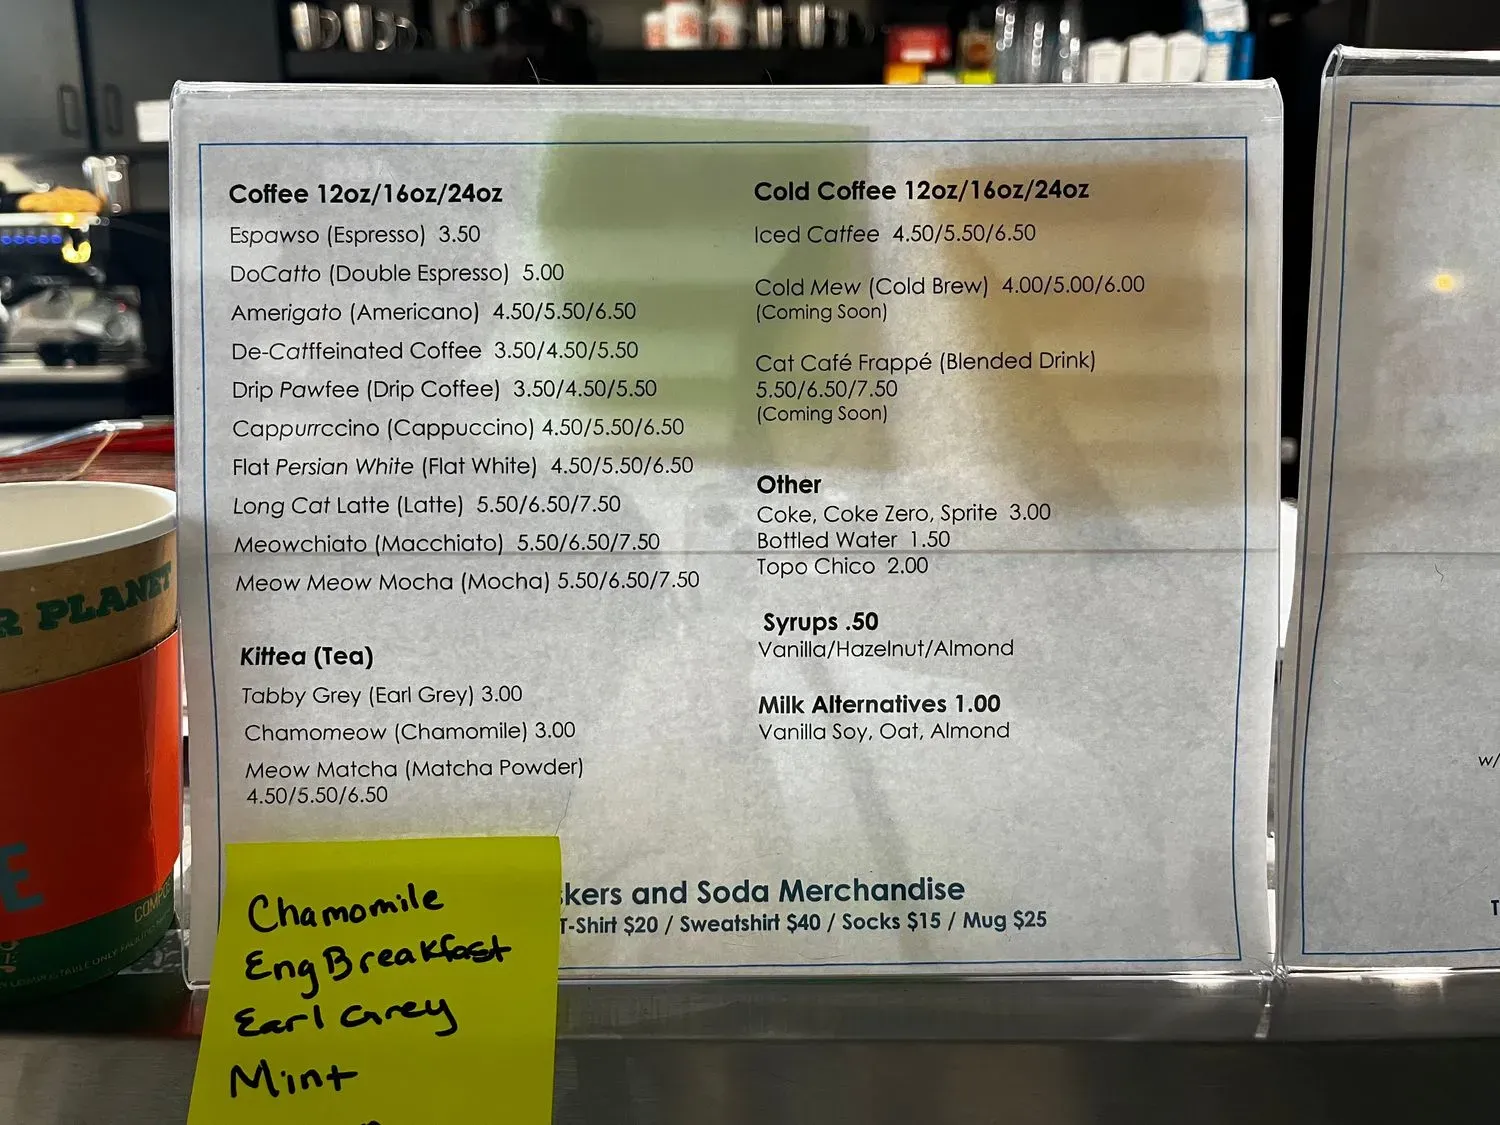 Coffee 12oz/16oz/24oz
Espawso (Espresso) 3.50
DoCatto (Double Espresso) 5.00
Amerigato (Americano) 4.50/5.50/6.50
De-Catffeinated Coffee 3.50/4.50/5.50
Drip Pawfee (Drip Coffee) 3.50/4.50/5.50
Cappurrccino (Cappuccino) 4.50/5.50/6.50
Flat Persian White (Flat White) 4.50/5.50/6.50
Long Cat Latte (Latte) 5.50/6.50/7.50
Meowchiato (Macchiato) 5.50/6.50/7.50
Meow Meow Mocha (Mocha) 5.50/6.50/7.50
Kittea (Tea)
Tabby Grey (Earl Grey) 3.00
Chamomeow (Chamomile) 3.00
Meow Matcha (Matcha Powder)
4.50/5.50/6.50
Cold Coffee 12oz/16oz/24oz
Iced Catfee 4.50/5.50/6.50
Cold Mew (Cold Brew) 4.00/5.00/6.00
(Coming Soon)
Cat Café Frappé (Blended Drink)
5.50/6.50/7.50
(Coming Soon)
Other
Coke, Coke Zero, Sprite 3.00
Bottled Water 1.50
Topo Chico 2.00
Syrups .50
Vanilla/Hazelnut/Almond
Milk Alternatives 1.00
Vanilla Soy, Oat, Almond
skers and Soda Merchandise
T-Shirt $20 / Sweatshirt $40 / Socks $15 / Mug $25
Chamomile
Eng Breakfast
Earl Grey
Mint
R PLANET
E
w/
T